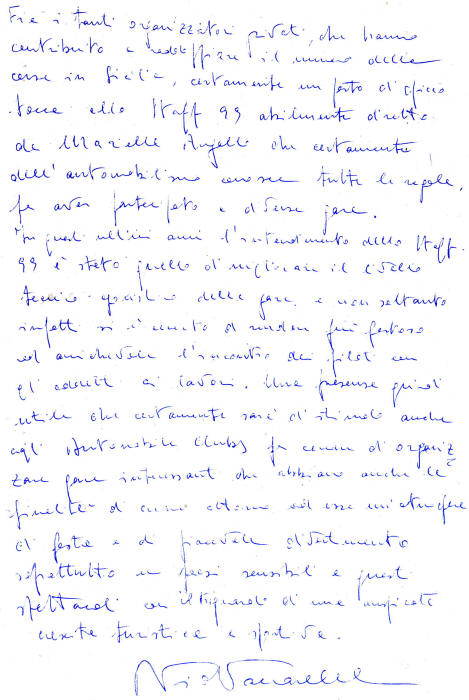 Fra i tanti organizzatori privati, che hanno
contribuito a raddoppiare il numero delle
corse in Sicilia, certamente un posto di spicco
tocca allo Staff 99 abilmente diretto
da Marielle che certamente
dell'automobilismo conosce tutte le regole,
per aver partecipato a diverse gare.
In questi ultimi anni l'intendimento dello Staff
99 è stato quello di migliorare il livello
tecnico sportivo delle gare, e non soltanto
infatti si è cercato di rendere più festoso
ed amichevole l'incontro dei piloti con
gli addetti ai lavori. Una presenza quindi
utile che certamente sarà di stimolo anche
agli Automobile Clubs per cercare di organiz
zare gare interessanti che abbiano anche le
finalità di creare attorno ad esse un'atmosfera
di festa e di piacevole divertimento
soprattutto in paesi sensibili a questi
spettacoli con il traguardo di una auspicata
crescita turistica e sportiva.